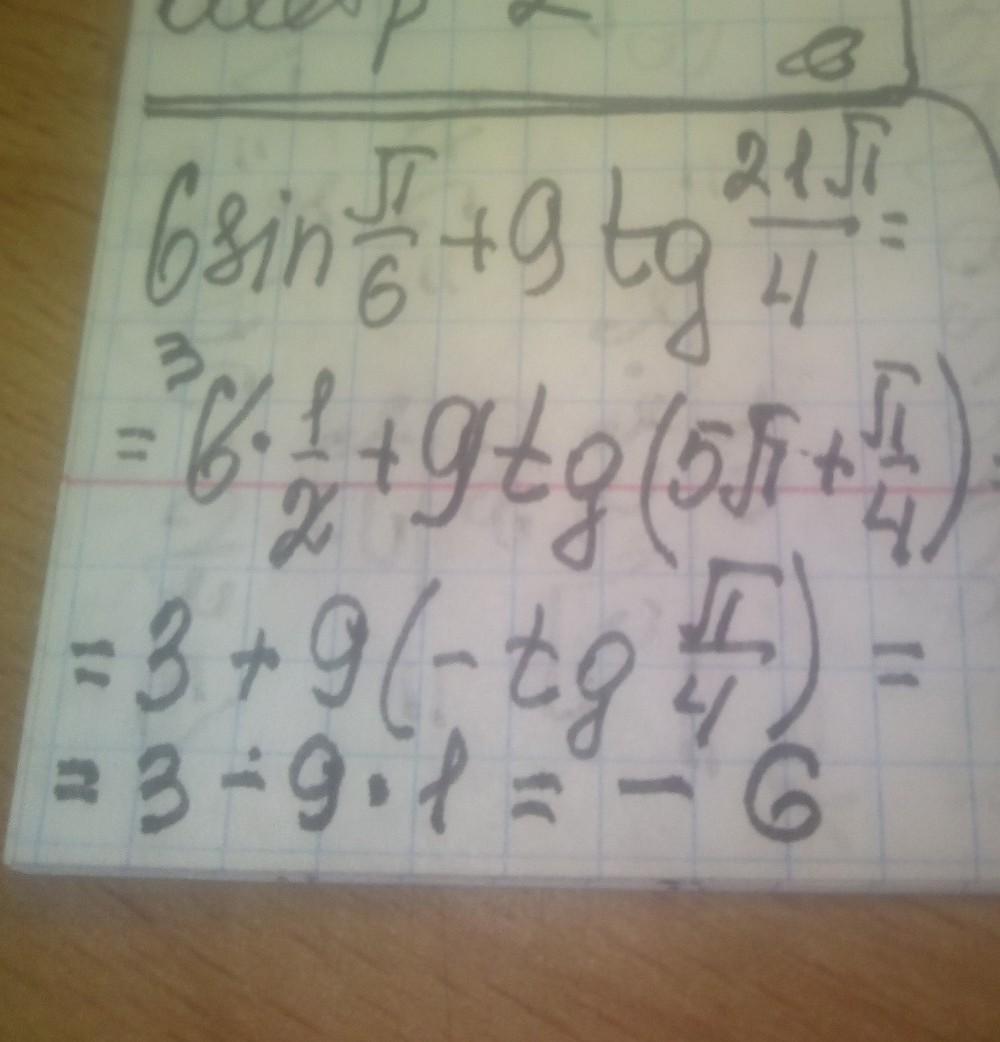 6sin π/6 + 9 tg 21π/4 =
= 6 · 1/2 + 9 tg (5π + π/4) =
= 3 + 9 (- tg π/4) =
= 3 - 9 · 1 = - 6